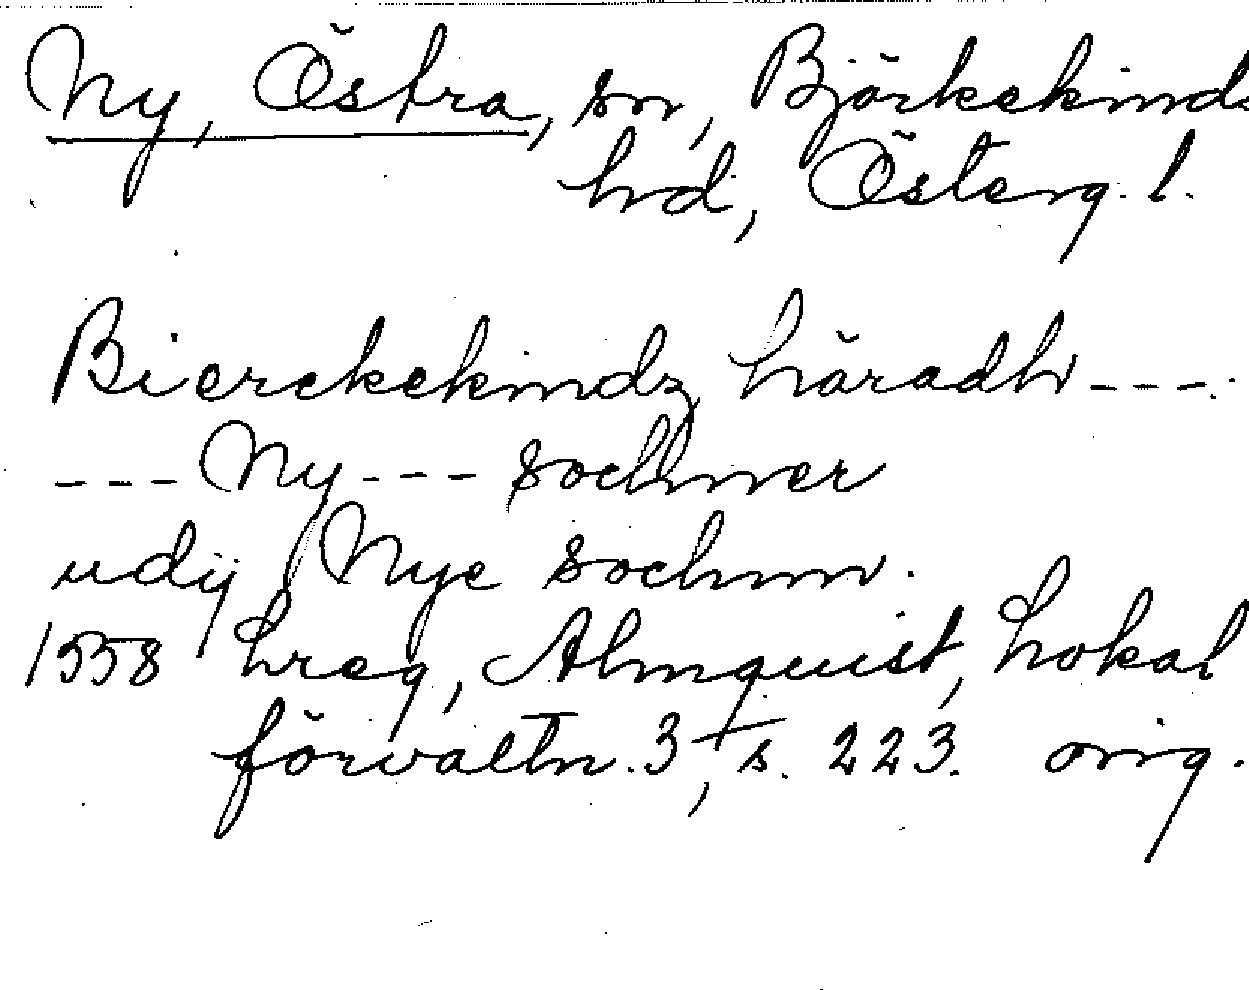 Ny, Östra, sn, Björkekinds
hd, Österg. l.
Bierckekindz häradh ---.
--- Ny --- sochner
udij Nye sochnn.
1558 Lreg, Almquist, Lokal
förvaltn. 3, s. 223. orig.